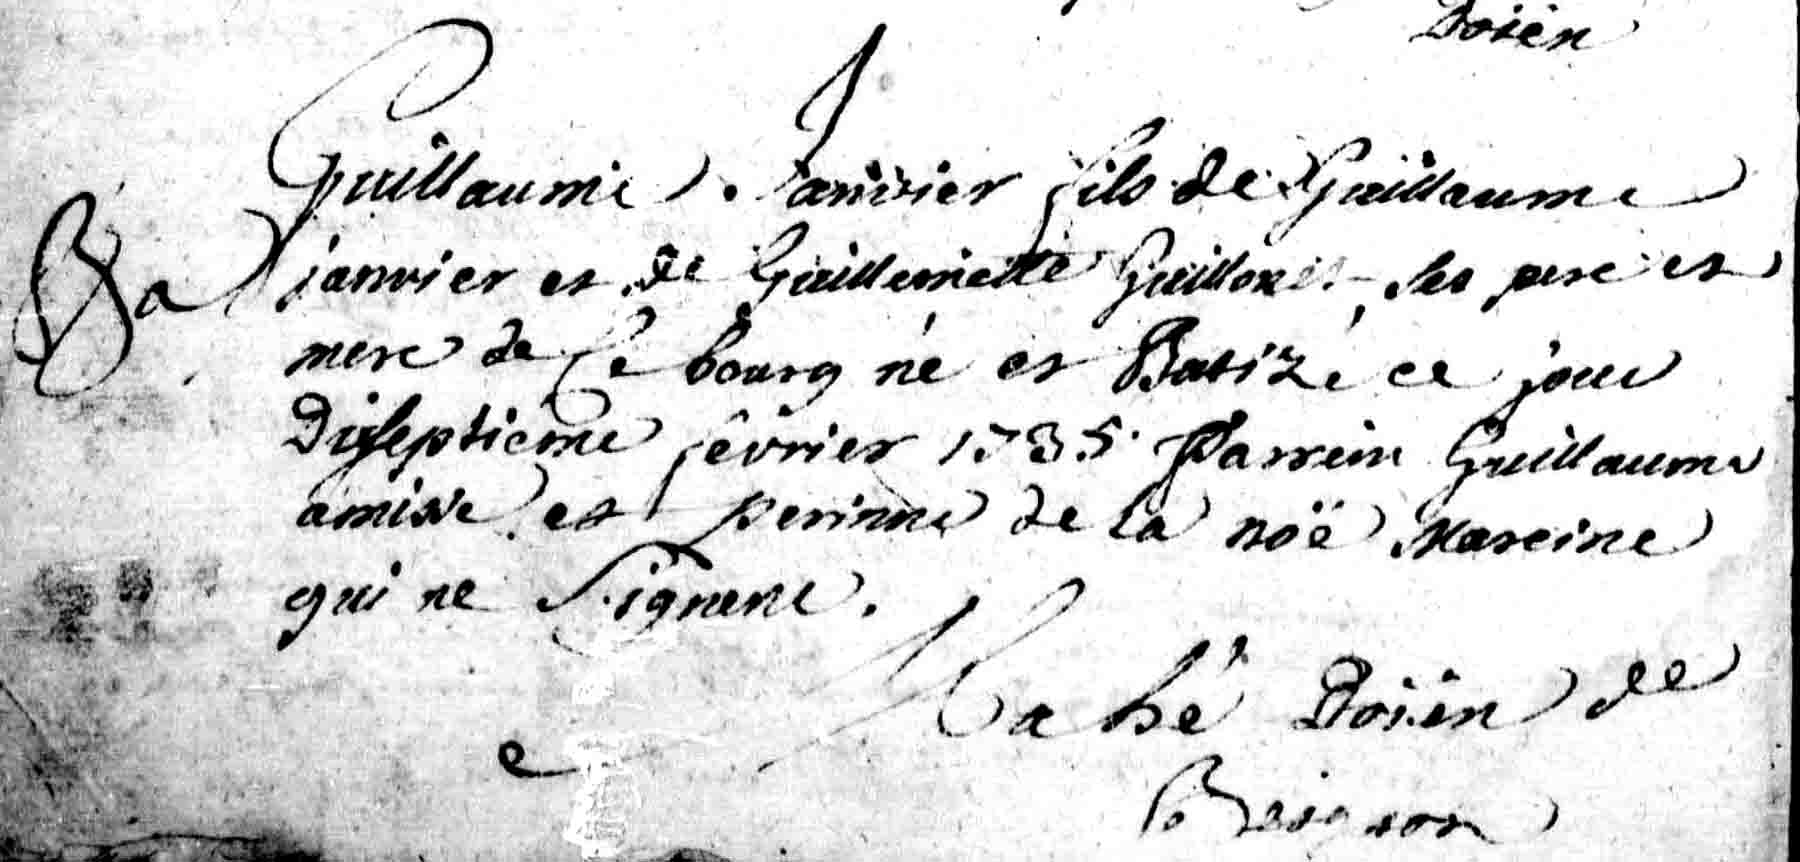 Doïen
Guillaume Janvier fils de Guillaume
Ba janvier et de Guillemette Guillo ses pere et
mere de ce bourg né et Batizé ce jour
Dixseptieme février 1735 Parrein Guillaume
amisse et perinne de la noë Mareine
qui ne signent.
Mahé Doïen de
Beignon